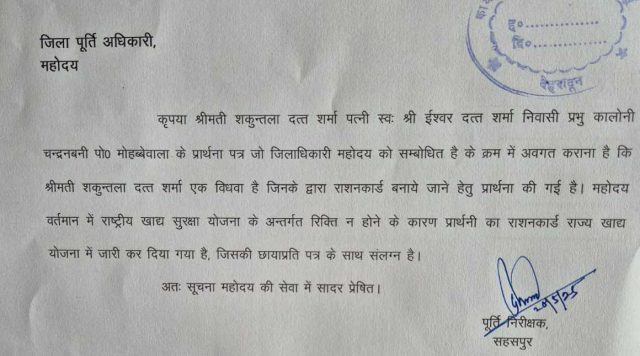 द०
दि०
देहरादून
जिला पूर्ति अधिकारी,
महोदय
कृपया श्रीमती शकुन्तला दत्त शर्मा पत्नी स्वः श्री ईश्वर दत्त शर्मा निवासी प्रभु कालोनी
चन्द्रनबनी पो0 मोहब्बेवाला के प्रार्थना पत्र जो जिलाधिकारी महोदय को सम्बोधित है के क्रम में अवगत कराना है कि
श्रीमती शकुन्तला दत्त शर्मा एक विधवा है जिनके द्वारा राशनकार्ड बनाये जाने हेतु प्रार्थना की गई है। महोदय
वर्तमान में राष्ट्रीय खाद्य सुरक्षा योजना के अन्तर्गत रिक्ति न होने के कारण प्रार्थनी का राशनकार्ड राज्य खाद्य
योजना में जारी कर दिया गया है, जिसकी छायाप्रति पत्र के साथ संलग्न है।
अतः सूचना महोदय की सेवा में सादर प्रेषित।
20/5/25
पूर्ति निरीक्षक,
सहसपुर